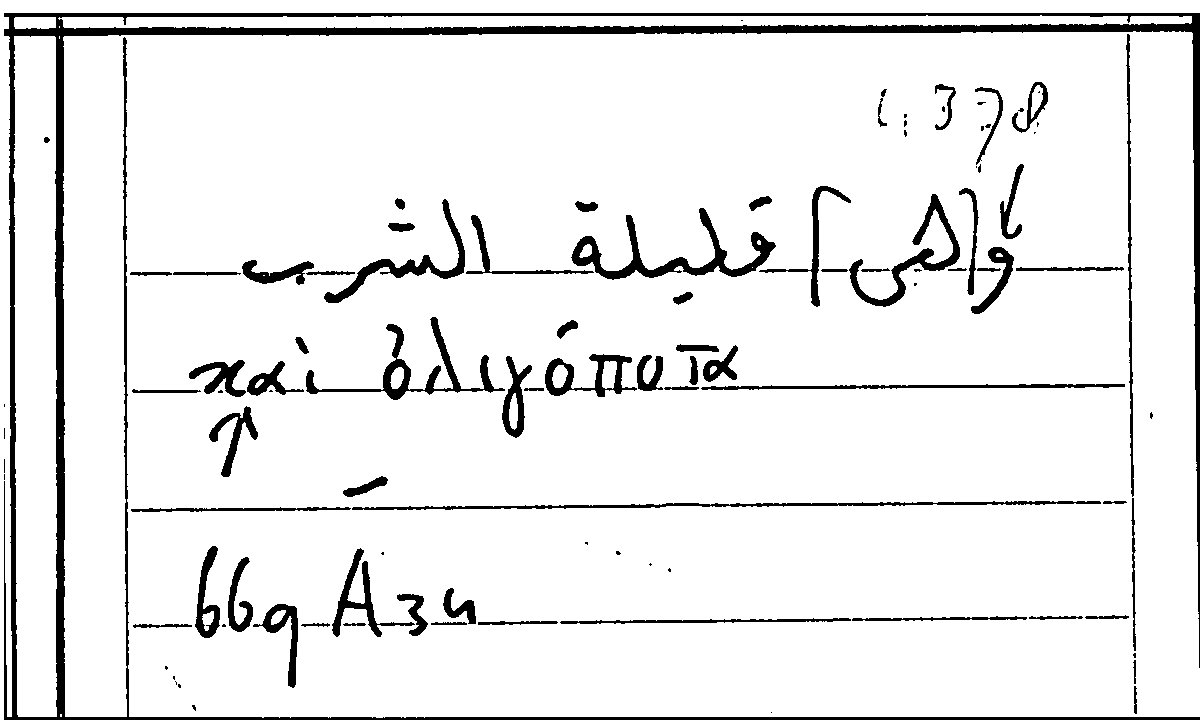 1.378
و[هى] قليلة الشرب
καὶ ὀλιγόποτα
669 A 34